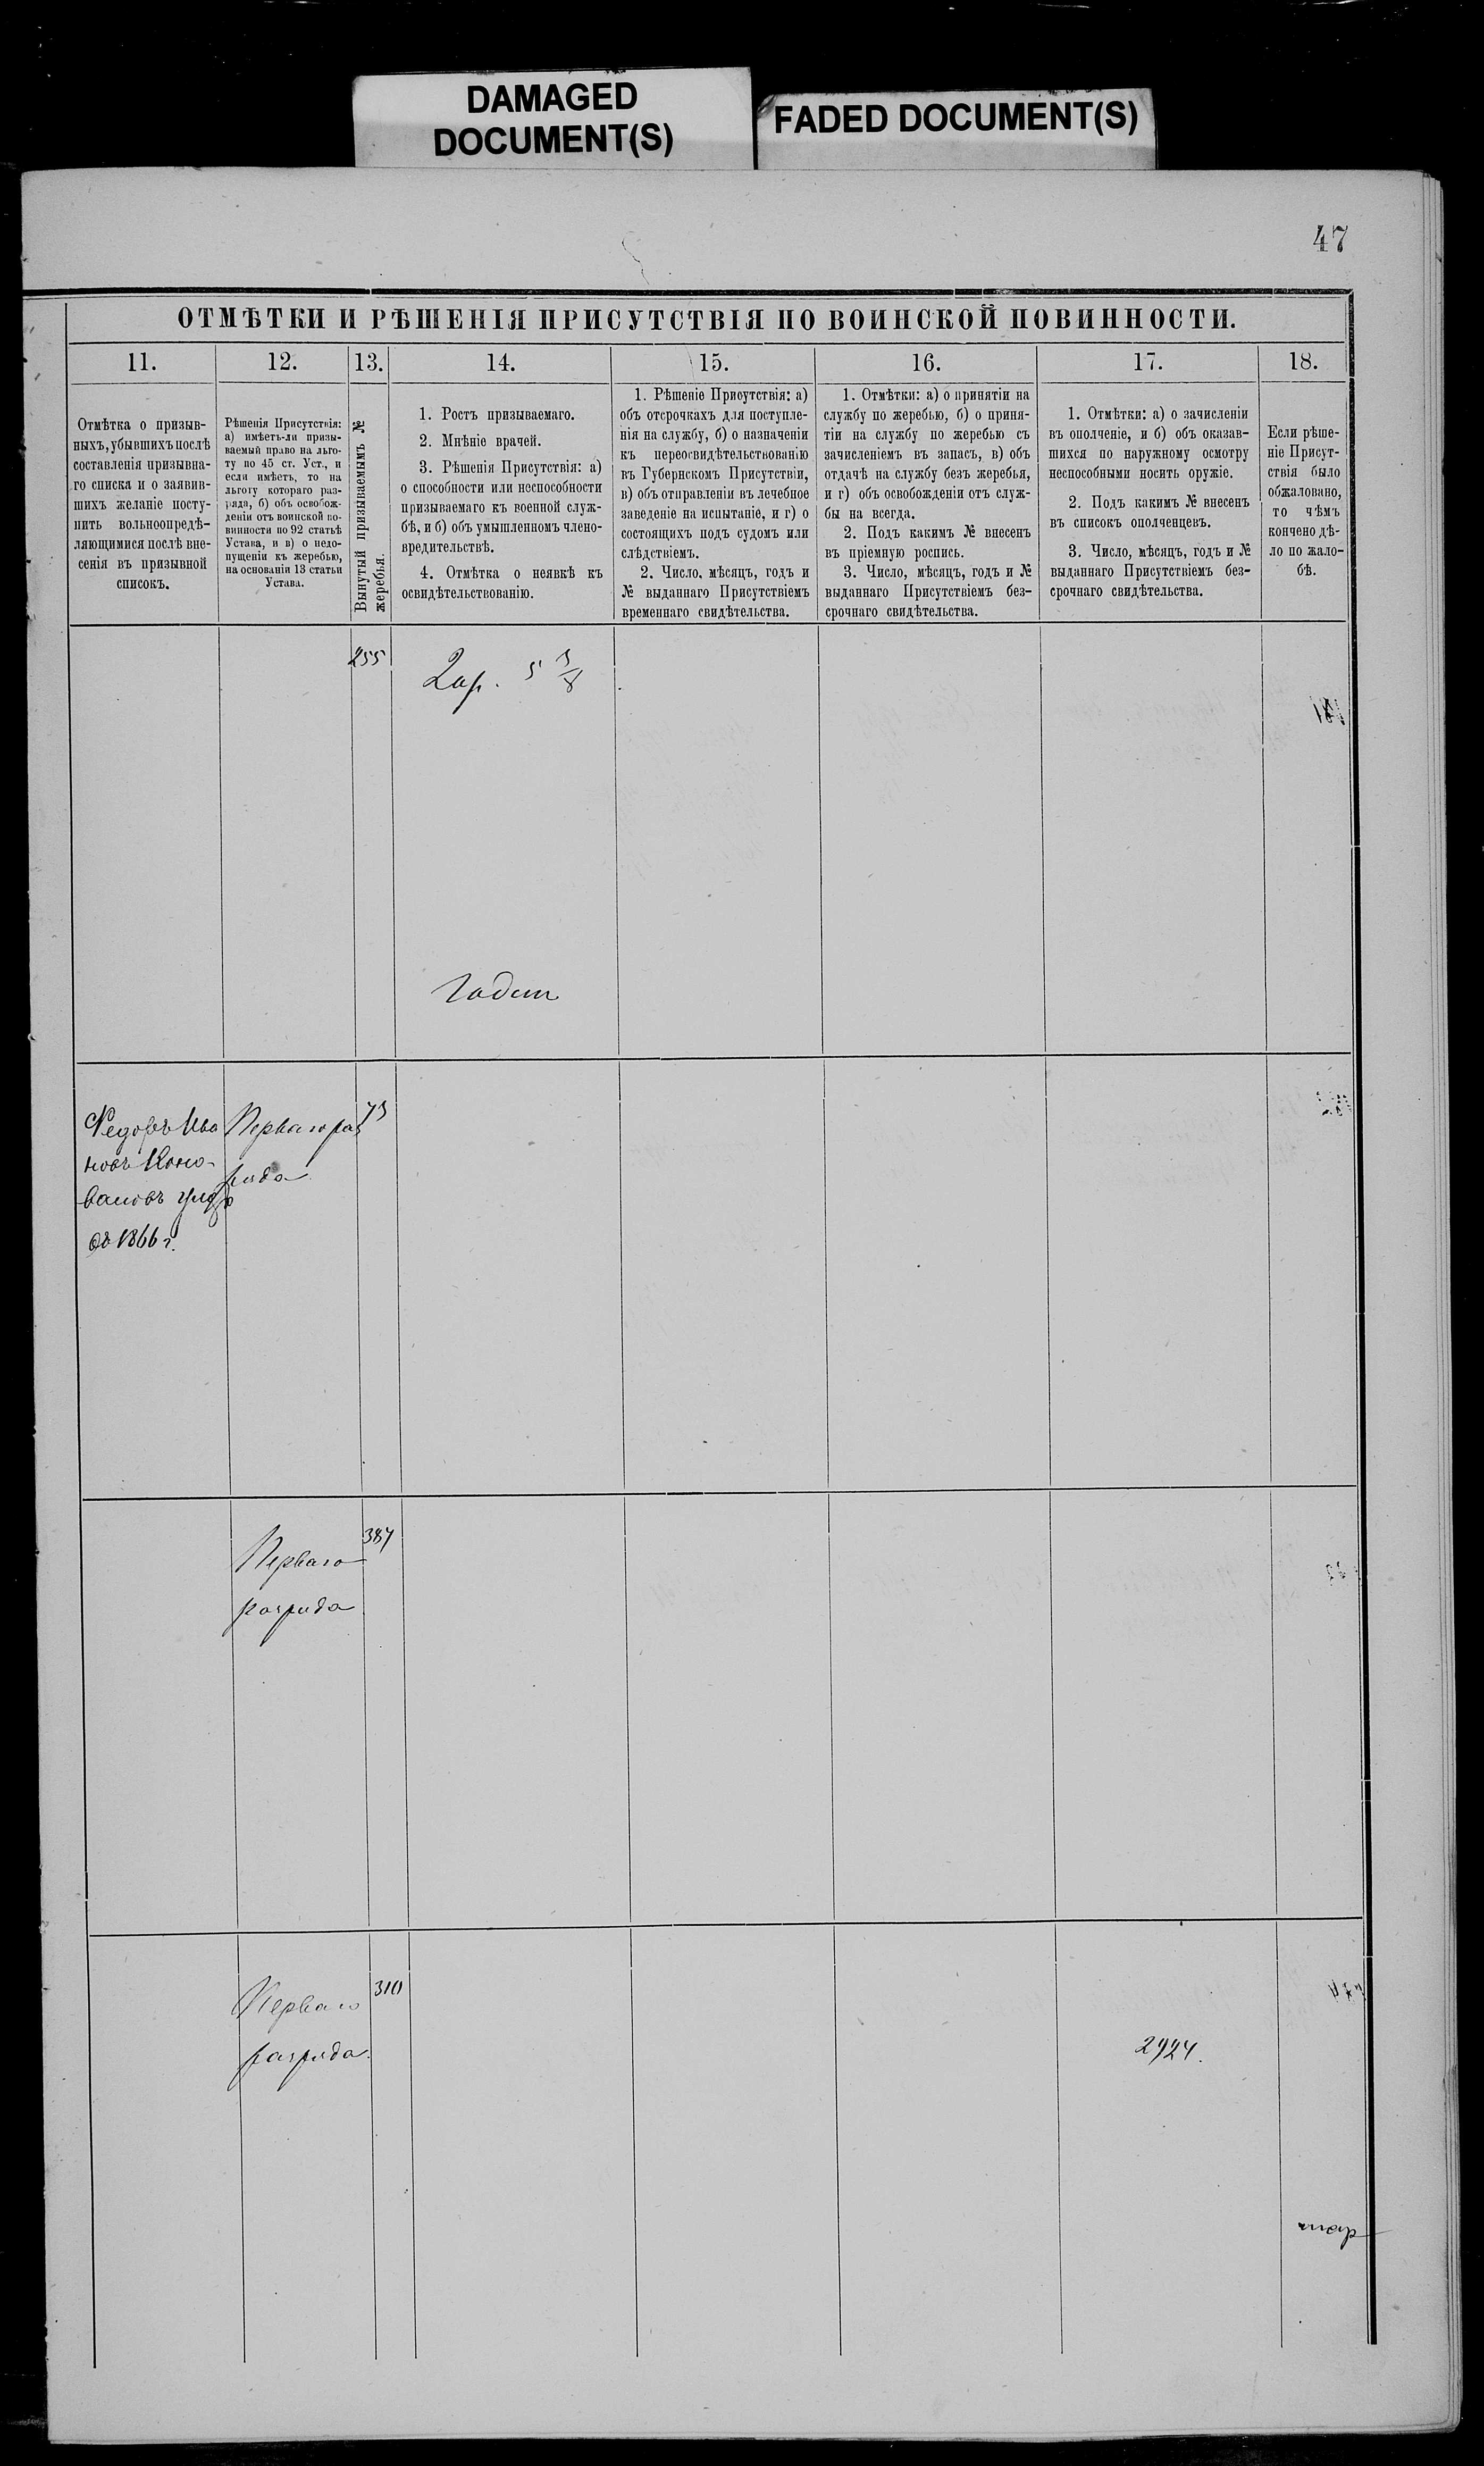 DAMAGED
DOCUMENT(S)
FADED DOCUMENT(S)
47
ОТМѢТКИ И РѢШЕНІЯ ПРИСУТСТВІЯ ПО ВОИНСКОЙ ПОВИННОСТИ.
11.
Отмѣтка о призыв-
ныхъ, убывшихъ послѣ
составленія призывна-
го списка и о заявив-
шихъ желаніе посту-
пить вольноопредѣ-
ляющимися послѣ вне-
сенія въ призывной
списокъ.
12.
Рѣшенія Присутствія:
а) имѣетъ-ли призы-
ваемый право на льго-
ту по 45 ст. Уст., и
если имѣетъ, то на
льготу котораго раз-
ряда, б) объ освобож-
деніи отъ воинской по-
винности по 92 статьѣ
Устава, и в) о недо-
пущеніи къ жеребью,
на основаніи 13 статьи
Устава.
13.
Вынутый призываемымъ №
жеребья.
14.
1. Ростъ призываемаго.
2. Мнѣніе врачей.
3. Рѣшенія Присутствія: а)
о способности или неспособности
призываемаго къ военной служ-
бѣ, и б) объ умышленномъ члено-
вредительствѣ.
4. Отмѣтка о неявкѣ къ
освидѣтельствованію.
15.
1. Рѣшеніе Присутствія: а)
объ отсрочкахъ для поступле-
нія на службу, б) о назначеніи
къ переосвидѣтельствованію
въ Губернскомъ Присутствіи,
в) объ отправленіи въ лечебное
заведеніе на испытаніе, и г) о
состоящихъ подъ судомъ или
слѣдствіемъ.
2. Число, мѣсяцъ, годъ и
№ выданнаго Присутствіемъ
временнаго свидѣтельства.
16.
1. Отмѣтки: а) о принятіи на
службу по жеребью, б) о приня-
тіи на службу по жеребью съ
зачисленіемъ въ запасъ, в) объ
отдачѣ на службу безъ жеребья,
и г) объ освобожденіи отъ служ-
бы на всегда.
2. Подъ какимъ № внесенъ
въ пріемную роспись.
3. Число, мѣсяцъ, годъ и №
выданнаго Присутствіемъ без-
срочнаго свидѣтельства.
17.
1. Отмѣтки: а) о зачисленіи
въ ополченіе, и б) объ оказав-
шихся по наружному осмотру
неспособными носить оружіе.
2. Подъ какимъ № внесенъ
въ списокъ ополченцевъ.
3. Число, мѣсяцъ, годъ и №
выданнаго Присутствіемъ без-
срочнаго свидѣтельства.
18.
Если рѣше-
ніе Присут-
ствія было
обжаловано,
то чѣмъ
кончено дѣ-
ло по жало-
бѣ.
255
2 ар. 5 3/8
Годен
Федоръ Ива
новъ Коно-
валовъ
1866 г.
Перваго раз
ряда
73
Перваго
разряда
387
Перваго
разряда.
310
2924.